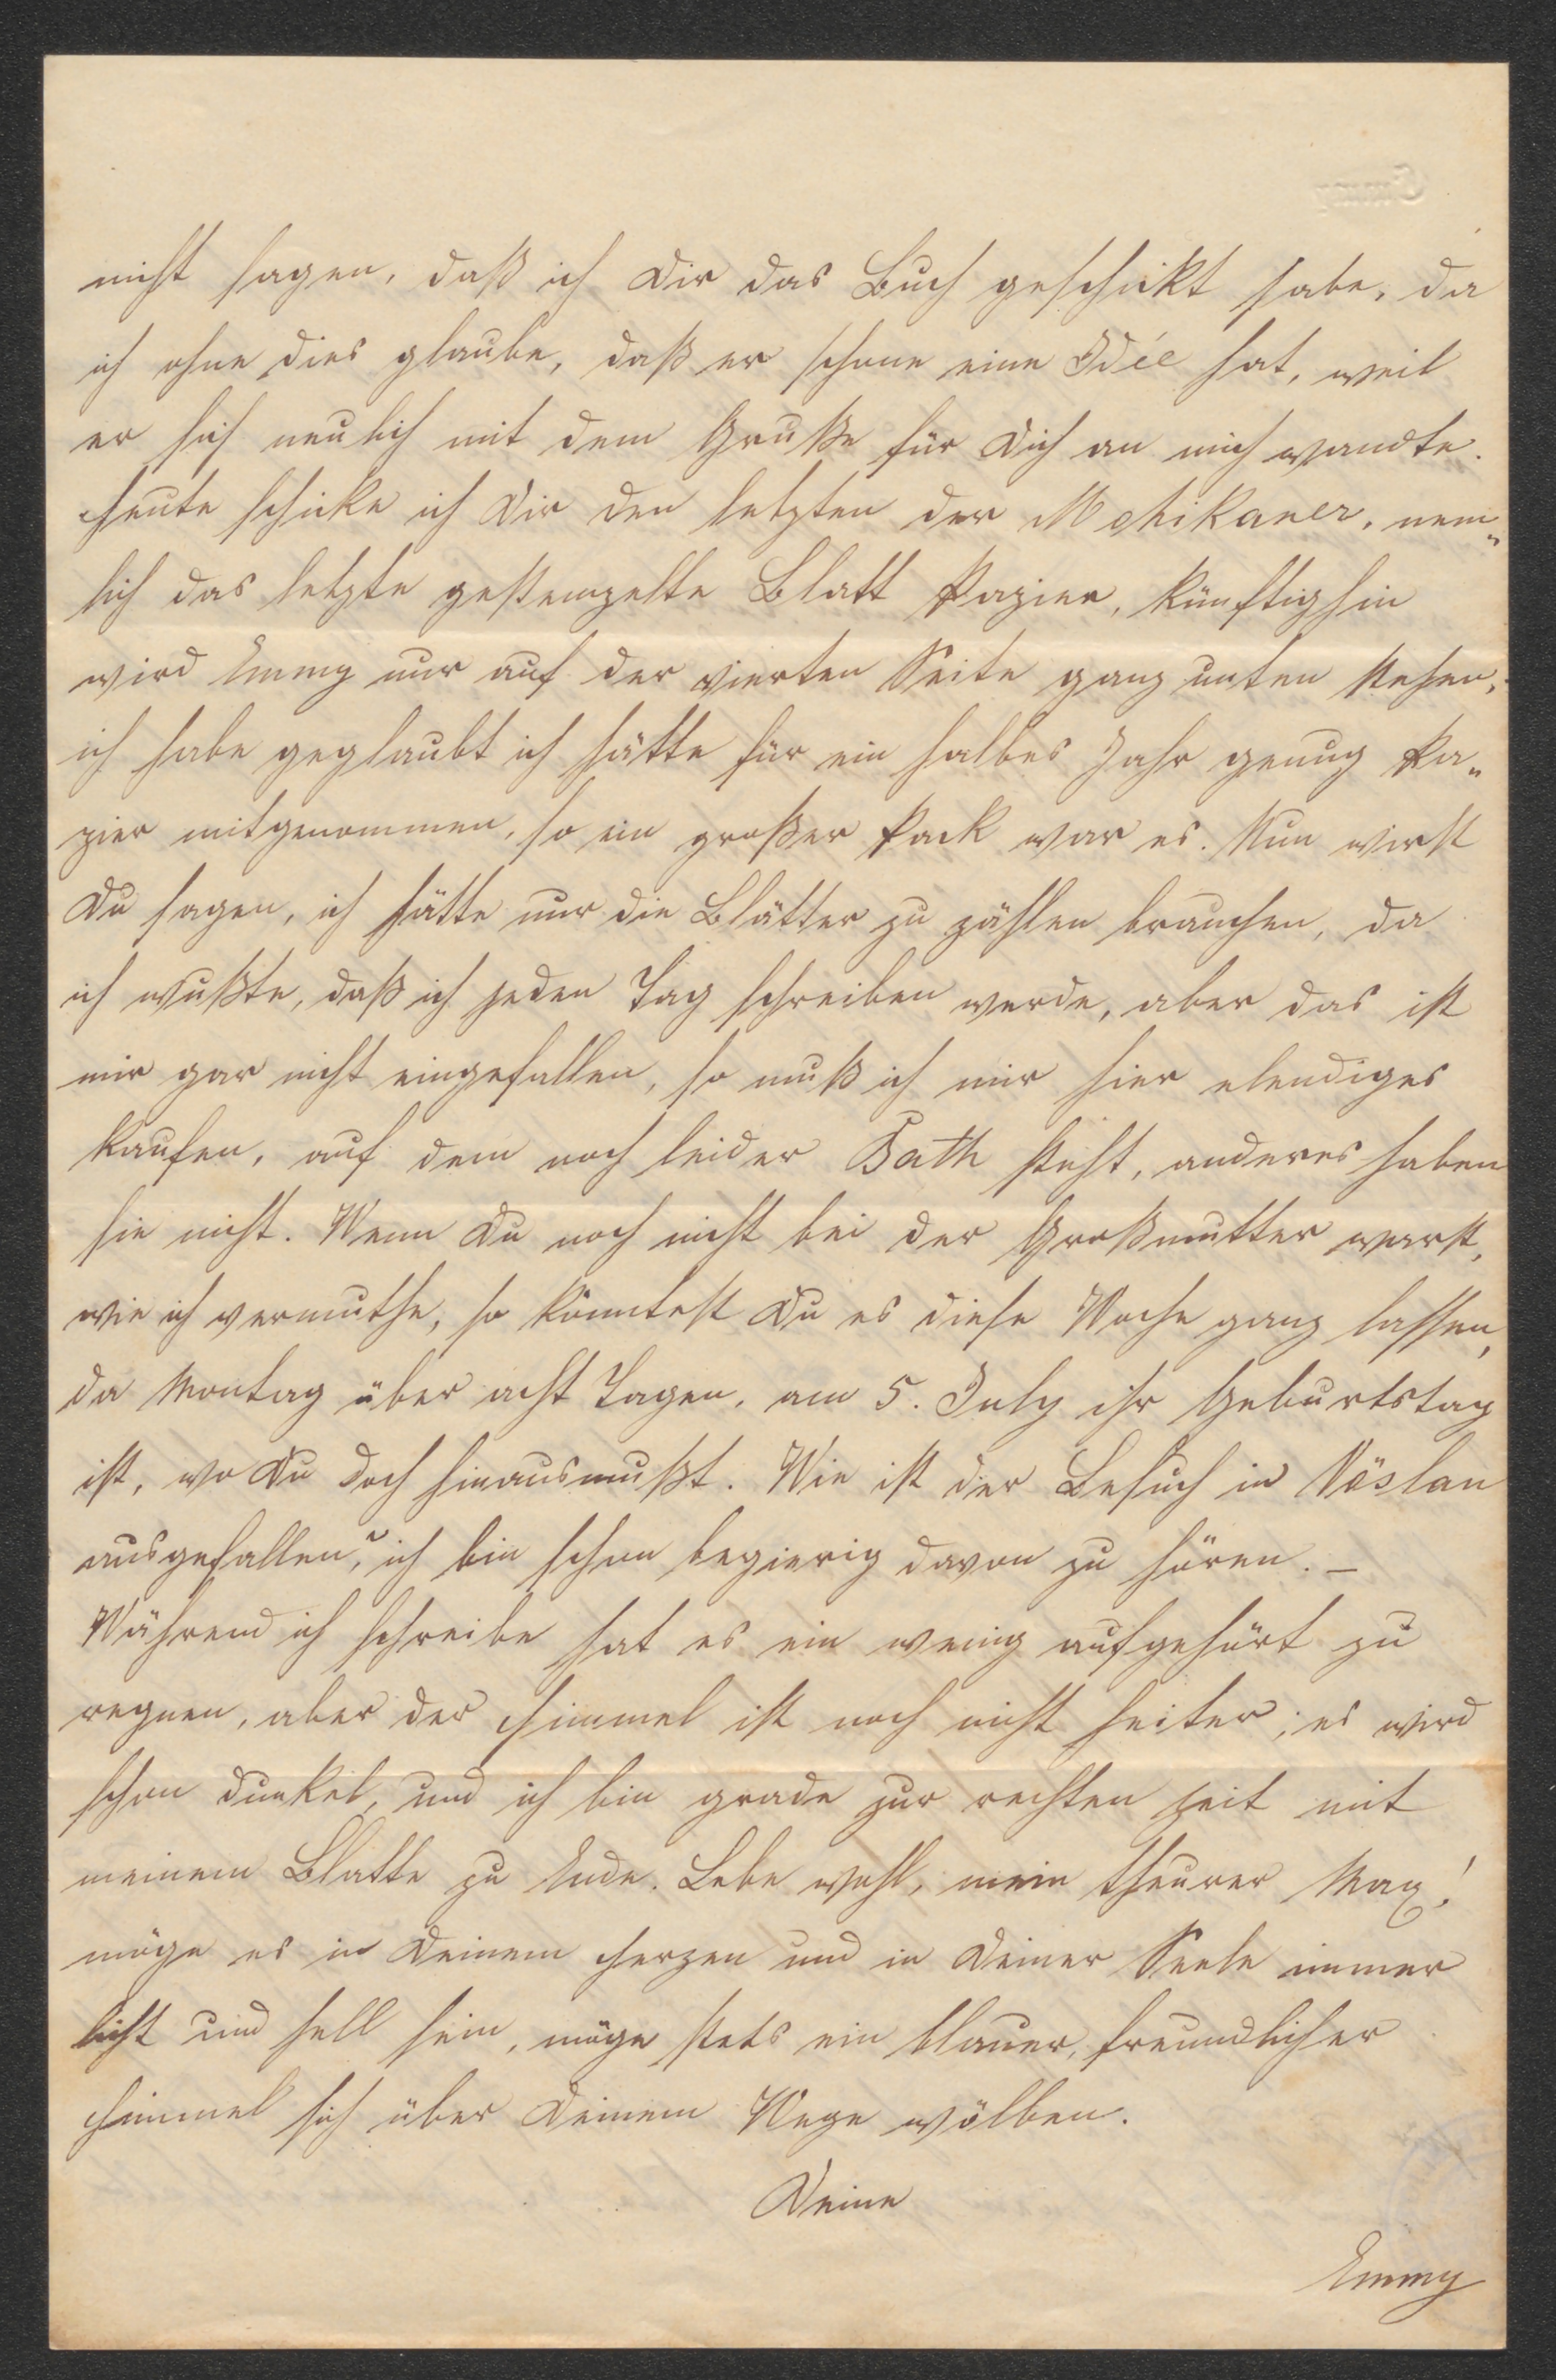 nicht sagen, daß ich Dir das Buch geschickt habe, da
ich ohne dies glaube, daß er schone eine Idée hat, weil
er sich neulich mit dem Gruße für Dich an mich wandte.
Heute schicke ich Dir den letzten der Mohikaner, nem„
lich das letzte gestempelte Blatt Papier, künftighin
wird Emmy nur auf der vierten Seite ganz unten stehen,
ich habe geglaubt ich hätte für ein halbes Jahr genug Pa„
pier mitgenommen, so ein großer Pack war es. Nun wirst
Du sagen, ich hätte nur die Blätter zu zählen brauchen, da
ich wußte, daß ich jeden Tag schreiben werde, aber das ist
mir gar nicht eingefallen, so muß ich mir hier elendiges
kaufen, auf dem noch leider Bath steht, anderes haben
sie nicht. Wenn Du noch nicht bei der Großmutter warst,
wie ich vermuthe, so könntest Du es diese Woche ganz lassen,
da Montag über acht Tagen, am 5. July ihr Geburtstag
ist, wo Du doch hinausmußt. Wie ist der Besuch in Vöslau
ausgefallen, ich bin schon begierig davon zu hören. –
Während ich schreibe hat es ein wenig aufgehört zu
regnen, aber der Himmel ist noch nicht heiter; es wird
schon dunkel, und ich bin grade zur rechten Zeit mit
meinem Blatte zu Ende. Lebe wohl, mein theurer Max!
möge es in Deinem Herzen und in Deiner Seele immer
licht und hell sein, möge stets ein blauer, freundlicher
Himmel sich über Deinem Wege wölben.
Deine
Emmy